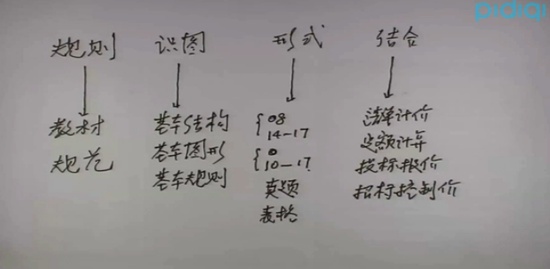 pidiqi
规则 识图 形式 结合
教材
规范
基本结构
基本图形
基本规则
08
14-17
10-17
真题
表格
清单计价
定额计算
投标报价
招标控制价